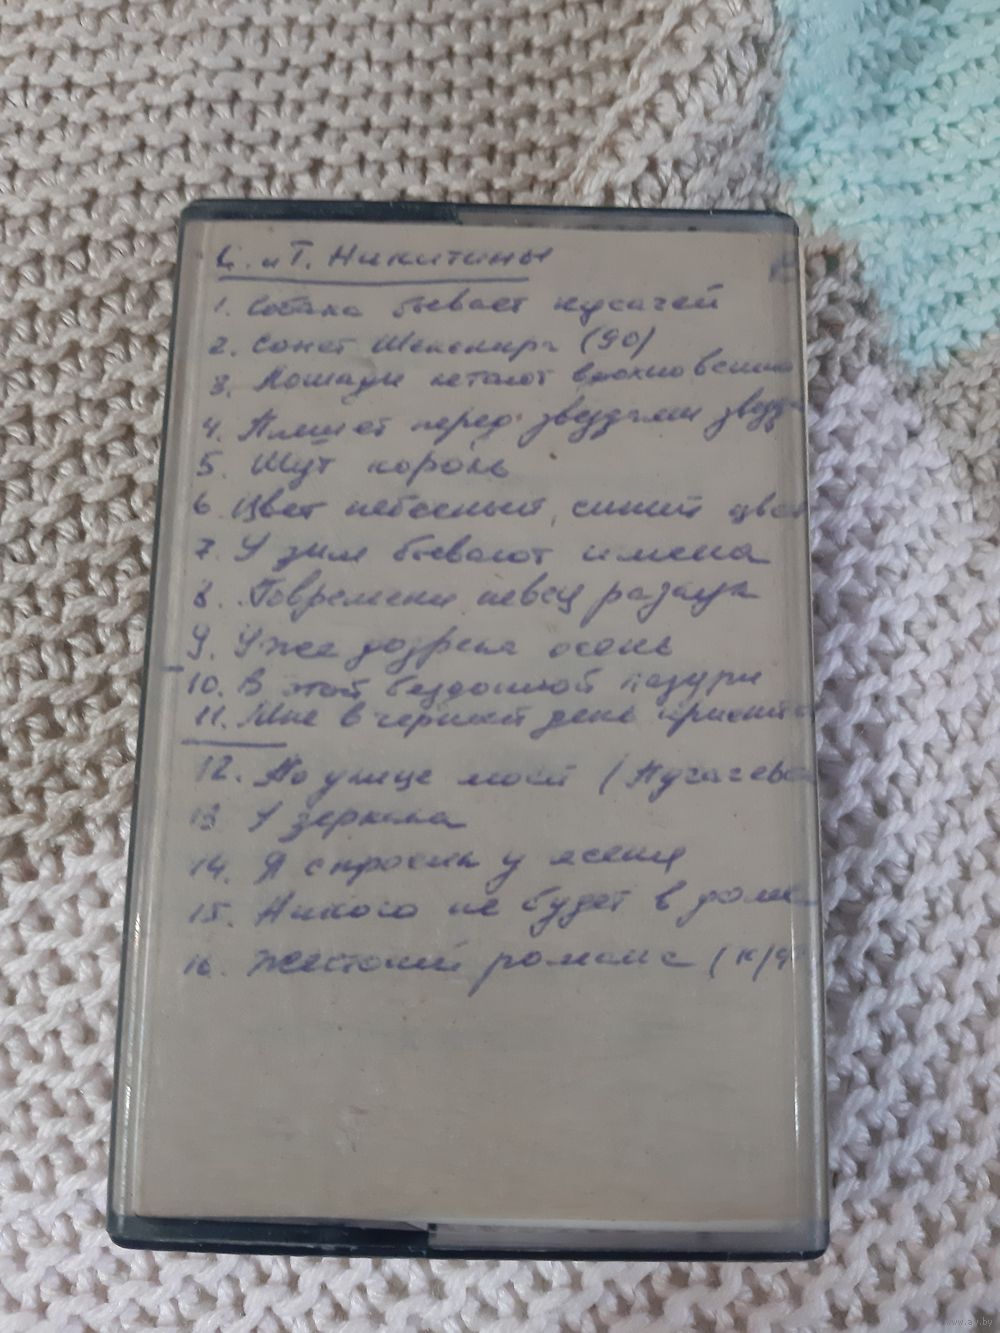 С. и Т. Никитины
1. Собака бывает кусачей
2. Сонет Шекспира (90)
3. Лошади летают вдохновенно
4. перед звездами
5. Шут король
6. Цвет небесный, синий цвет
7. У зим бывают имена
8. певец разлук
9. Уже дозрела осень
10. В этой бездонной лазури
11. Мне в черный день
12. По улице моей (Пугачева
13. У зеркала
14. Я спросил у ясеня
15. Никого не будет в доме
16. Жестокий романс (к/ф
www.ay.by